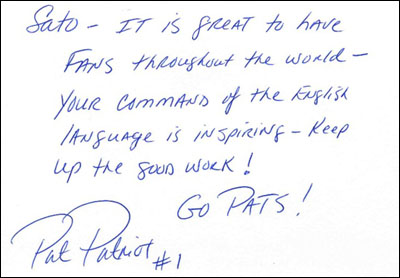 Sato - IT IS GREAT to have
FANS throughout the world -
YOUR COMMAND of the English
language is inspiring - Keep
up the good work!
GO PATS!
Pat Patriot #1